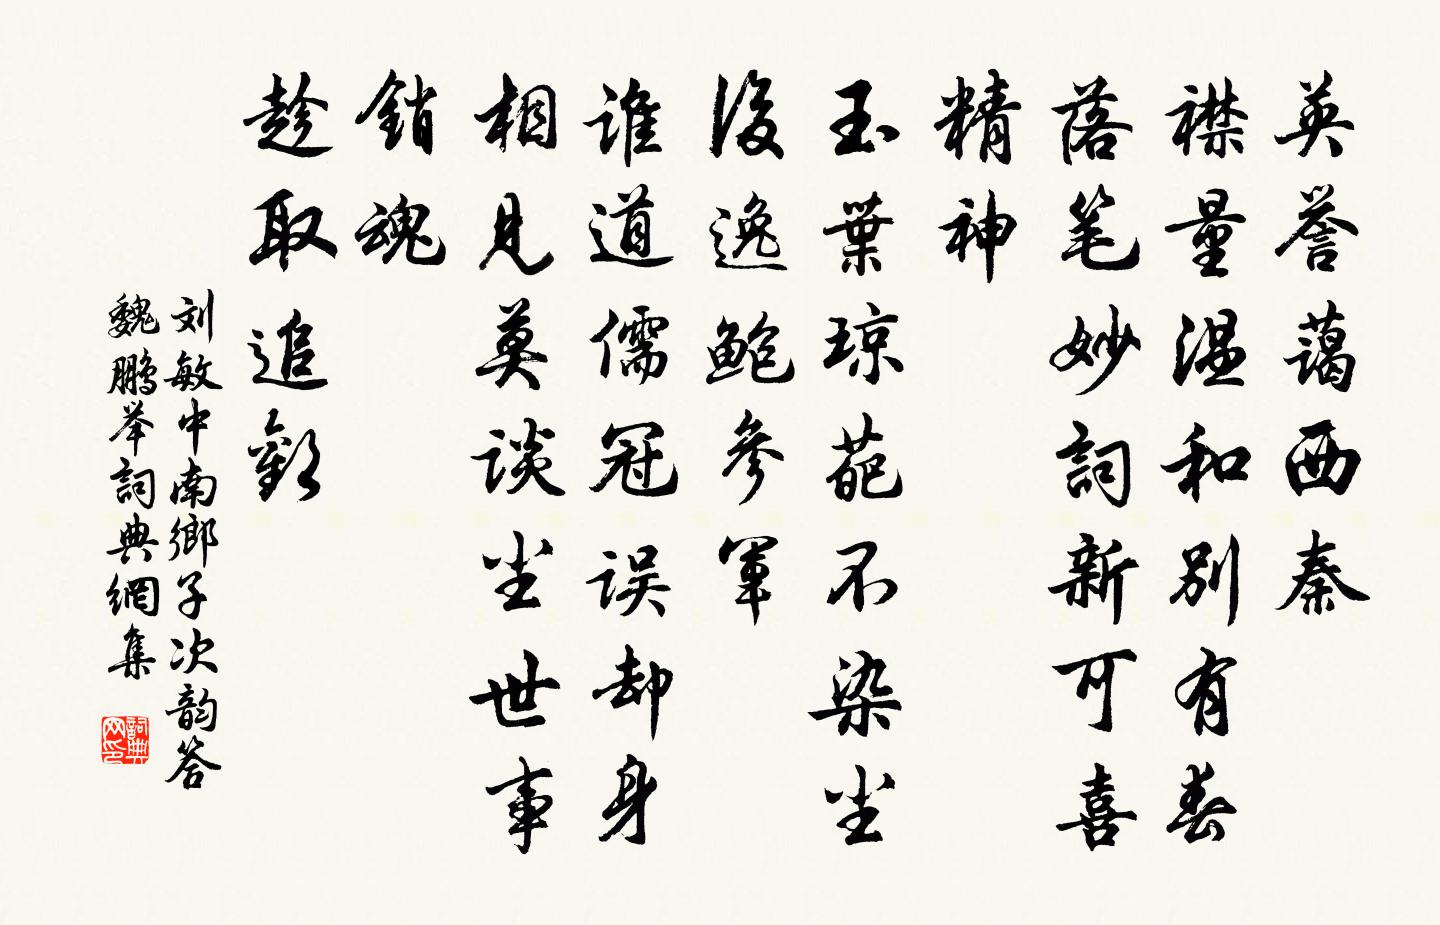 英誉蔼西秦
襟量温和别有春
落笔妙词新可喜
精神
玉叶琼葩不染尘
後逸鲍参军
谁道儒冠误却身
相见莫谈尘世事
销魂
趁取追欢
刘敏中南乡子次韵答
魏鹏举词典网集
词典网印